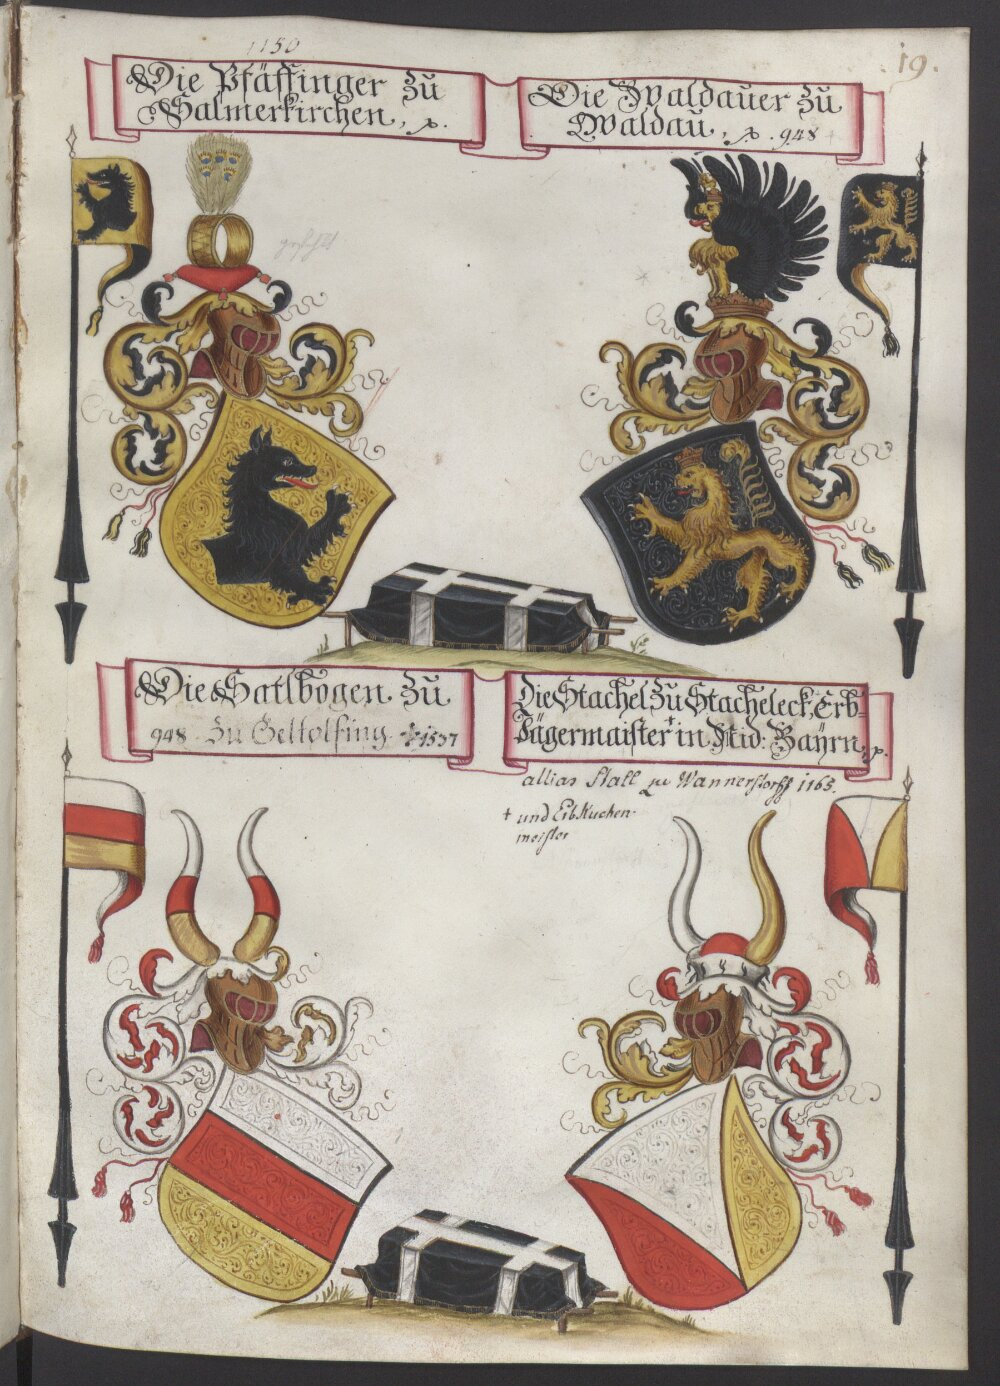 1150
19.
Die Pfäffinger zu
Salmerkirchen, ꝛc.
Die Waldauer zu
Waldau, ꝛc. 948
Die Satlbogen zu
948 zu Geltolfing ꝛc 1537
Die Stachel zu Stacheleck, Erb=
Jägermaister in Nid: Bayrn ꝛc.
allias Stall zu Wannerstorff 1165.
† und Erb Kuchen-
meister